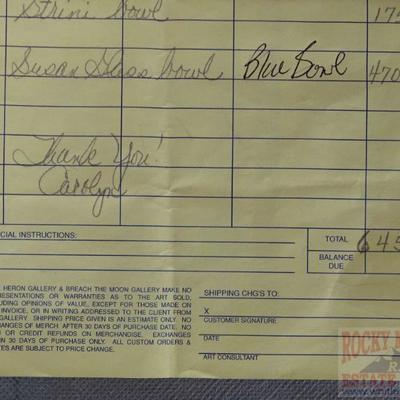 Strini bowl 175
Susan Glass bowl Blue Bowl 470
Thank You!
Carolyn
CIAL INSTRUCTIONS:
TOTAL 645
BALANCE DUE
HERON GALLERY & BREACH THE MOON GALLERY MAKE NO
PRESENTATIONS OR WARRANTIES AS TO THE ART SOLD,
CLUDING OPINIONS OF VALUE, EXCEPT FOR THOSE MADE ON
INVOICE, OR IN WRITING ADDRESSED TO THE CLIENT FROM
GALLERY. SHIPPING PRICE GIVEN IS AN ESTIMATE ONLY. NO
HANGES OF MERCH. AFTER 30 DAYS OF PURCHASE DATE. NO
OR CREDIT REFUNDS ON MERCHANDISE. EXCHANGES
IN 30 DAYS OF PURCHASE ONLY. ALL CUSTOM ORDERS &
TES ARE SUBJECT TO PRICE CHANGE.
SHIPPING CHG'S TO:
X
CUSTOMER SIGNATURE
DATE
ART CONSULTANT
ROCKY M
ESTATE
www.whitle